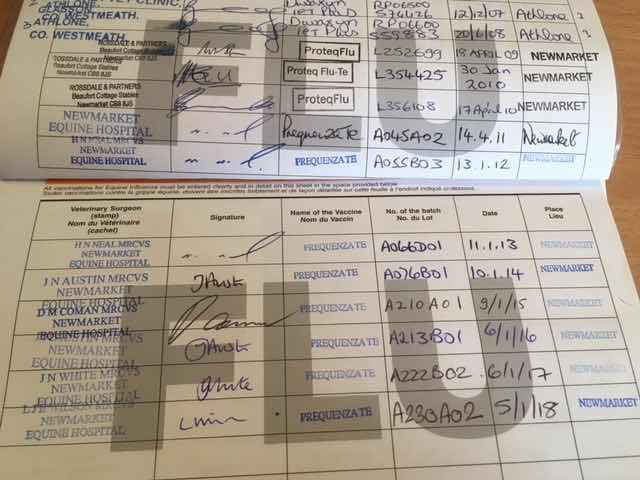 CLINIC,
ATHLONE, Duvaxyn RP06500
GLASSON, 12/12/07 Athlone 2
CO. WESTMEATH.
3 ATHLONE, IET Plus S59883 20/6/08 Athlone 3
CO. WESTMEATH.
ROSSDALE & PARTNERS
Beaufort Cottage Stables
Newmarket CB8 8JS ProteqFlu L252699 18 APRIL 09 NEWMARKET
ROSSDALE & PARTNERS
Beaufort Cottage Stables
Newmarket CB8 8JS Proteq Flu-Te L354425 30 Jan 2010 NEWMARKET
ROSSDALE & PARTNERS
Beaufort Cottage Stables
Newmarket CB8 8JS ProteqFlu L356108 17 April 10 NEWMARKET
NEWMARKET
EQUINE HOSPITAL Prequenza Te A045A02 14.4.11 Newmarket
H N NEAL MRCVS
NEWMARKET
EQUINE HOSPITAL PREQUENZATE A055B03 13.1.12
All vaccinations for Equine Influenza must be entered clearly and in detail on this sheet in the space provided below.
Toutes vaccinations contre la grippe équine, doivent être inscrites lisiblement et de façon détaillée sur cette feuille à l'endroit indiqué ci-dessous.
Veterinary Surgeon
(stamp)
Nom du Vétérinaire
(cachet)
Signature
Name of the Vaccine
Nom du Vaccin
No. of the batch
No. du Lot
Date
Place
Lieu
H N NEAL MRCVS
NEWMARKET
EQUINE HOSPITAL PREQUENZATE A066D01 11.1.13 NEWMARKET
J N AUSTIN MRCVS
NEWMARKET
EQUINE HOSPITAL JAust PREQUENZATE A076B01 10.1.14 NEWMARKET
D M COMAN MRCVS
NEWMARKET
EQUINE HOSPITAL PREQUENZATE A210A01 9/1/15 NEWMARKET
MRCVS
NEWMARKET
EQUINE HOSPITAL JAust PREQUENZATE A213B01 6/1/16 NEWMARKET
J N WHITE MRCVS
NEWMARKET
EQUINE HOSPITAL PREQUENZATE A222B02 6/1/17 NEWMARKET
WILSON MRCVS
NEWMARKET
EQUINE HOSPITAL PREQUENZATE A230A02 5/1/18 NEWMARKET
FLU
FLU